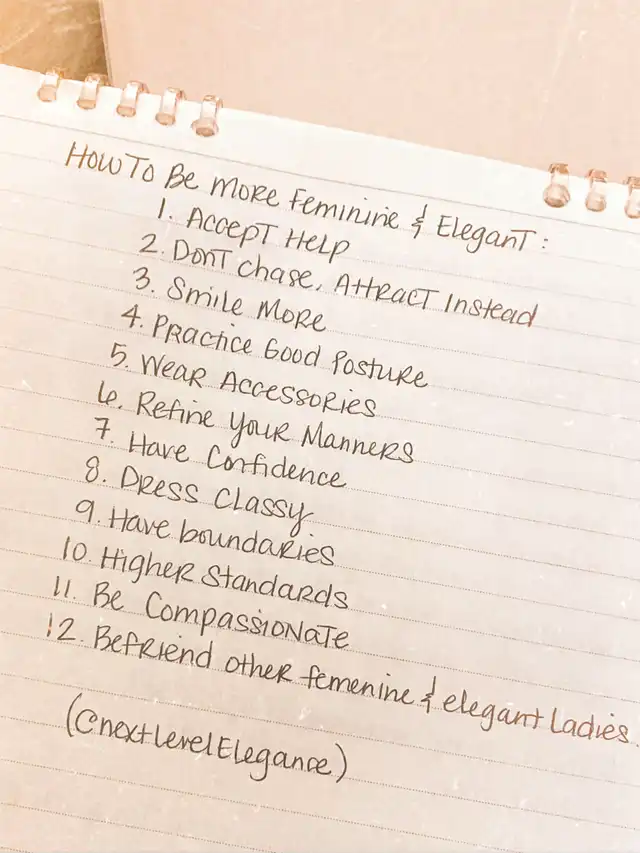 How To Be More Feminine & Elegant:
1. Accept Help
2. Dont Chase, Attract Instead
3. Smile More
4. Practice Good Posture
5. Wear Accessories
6. Refine Your Manners
7. Have Confidence
8. Dress Classy
9. Have boundaries
10. Higher Standards
11. Be Compassionate
12. Befriend other femenine & elegant Ladies.
(@nextLevelElegance)